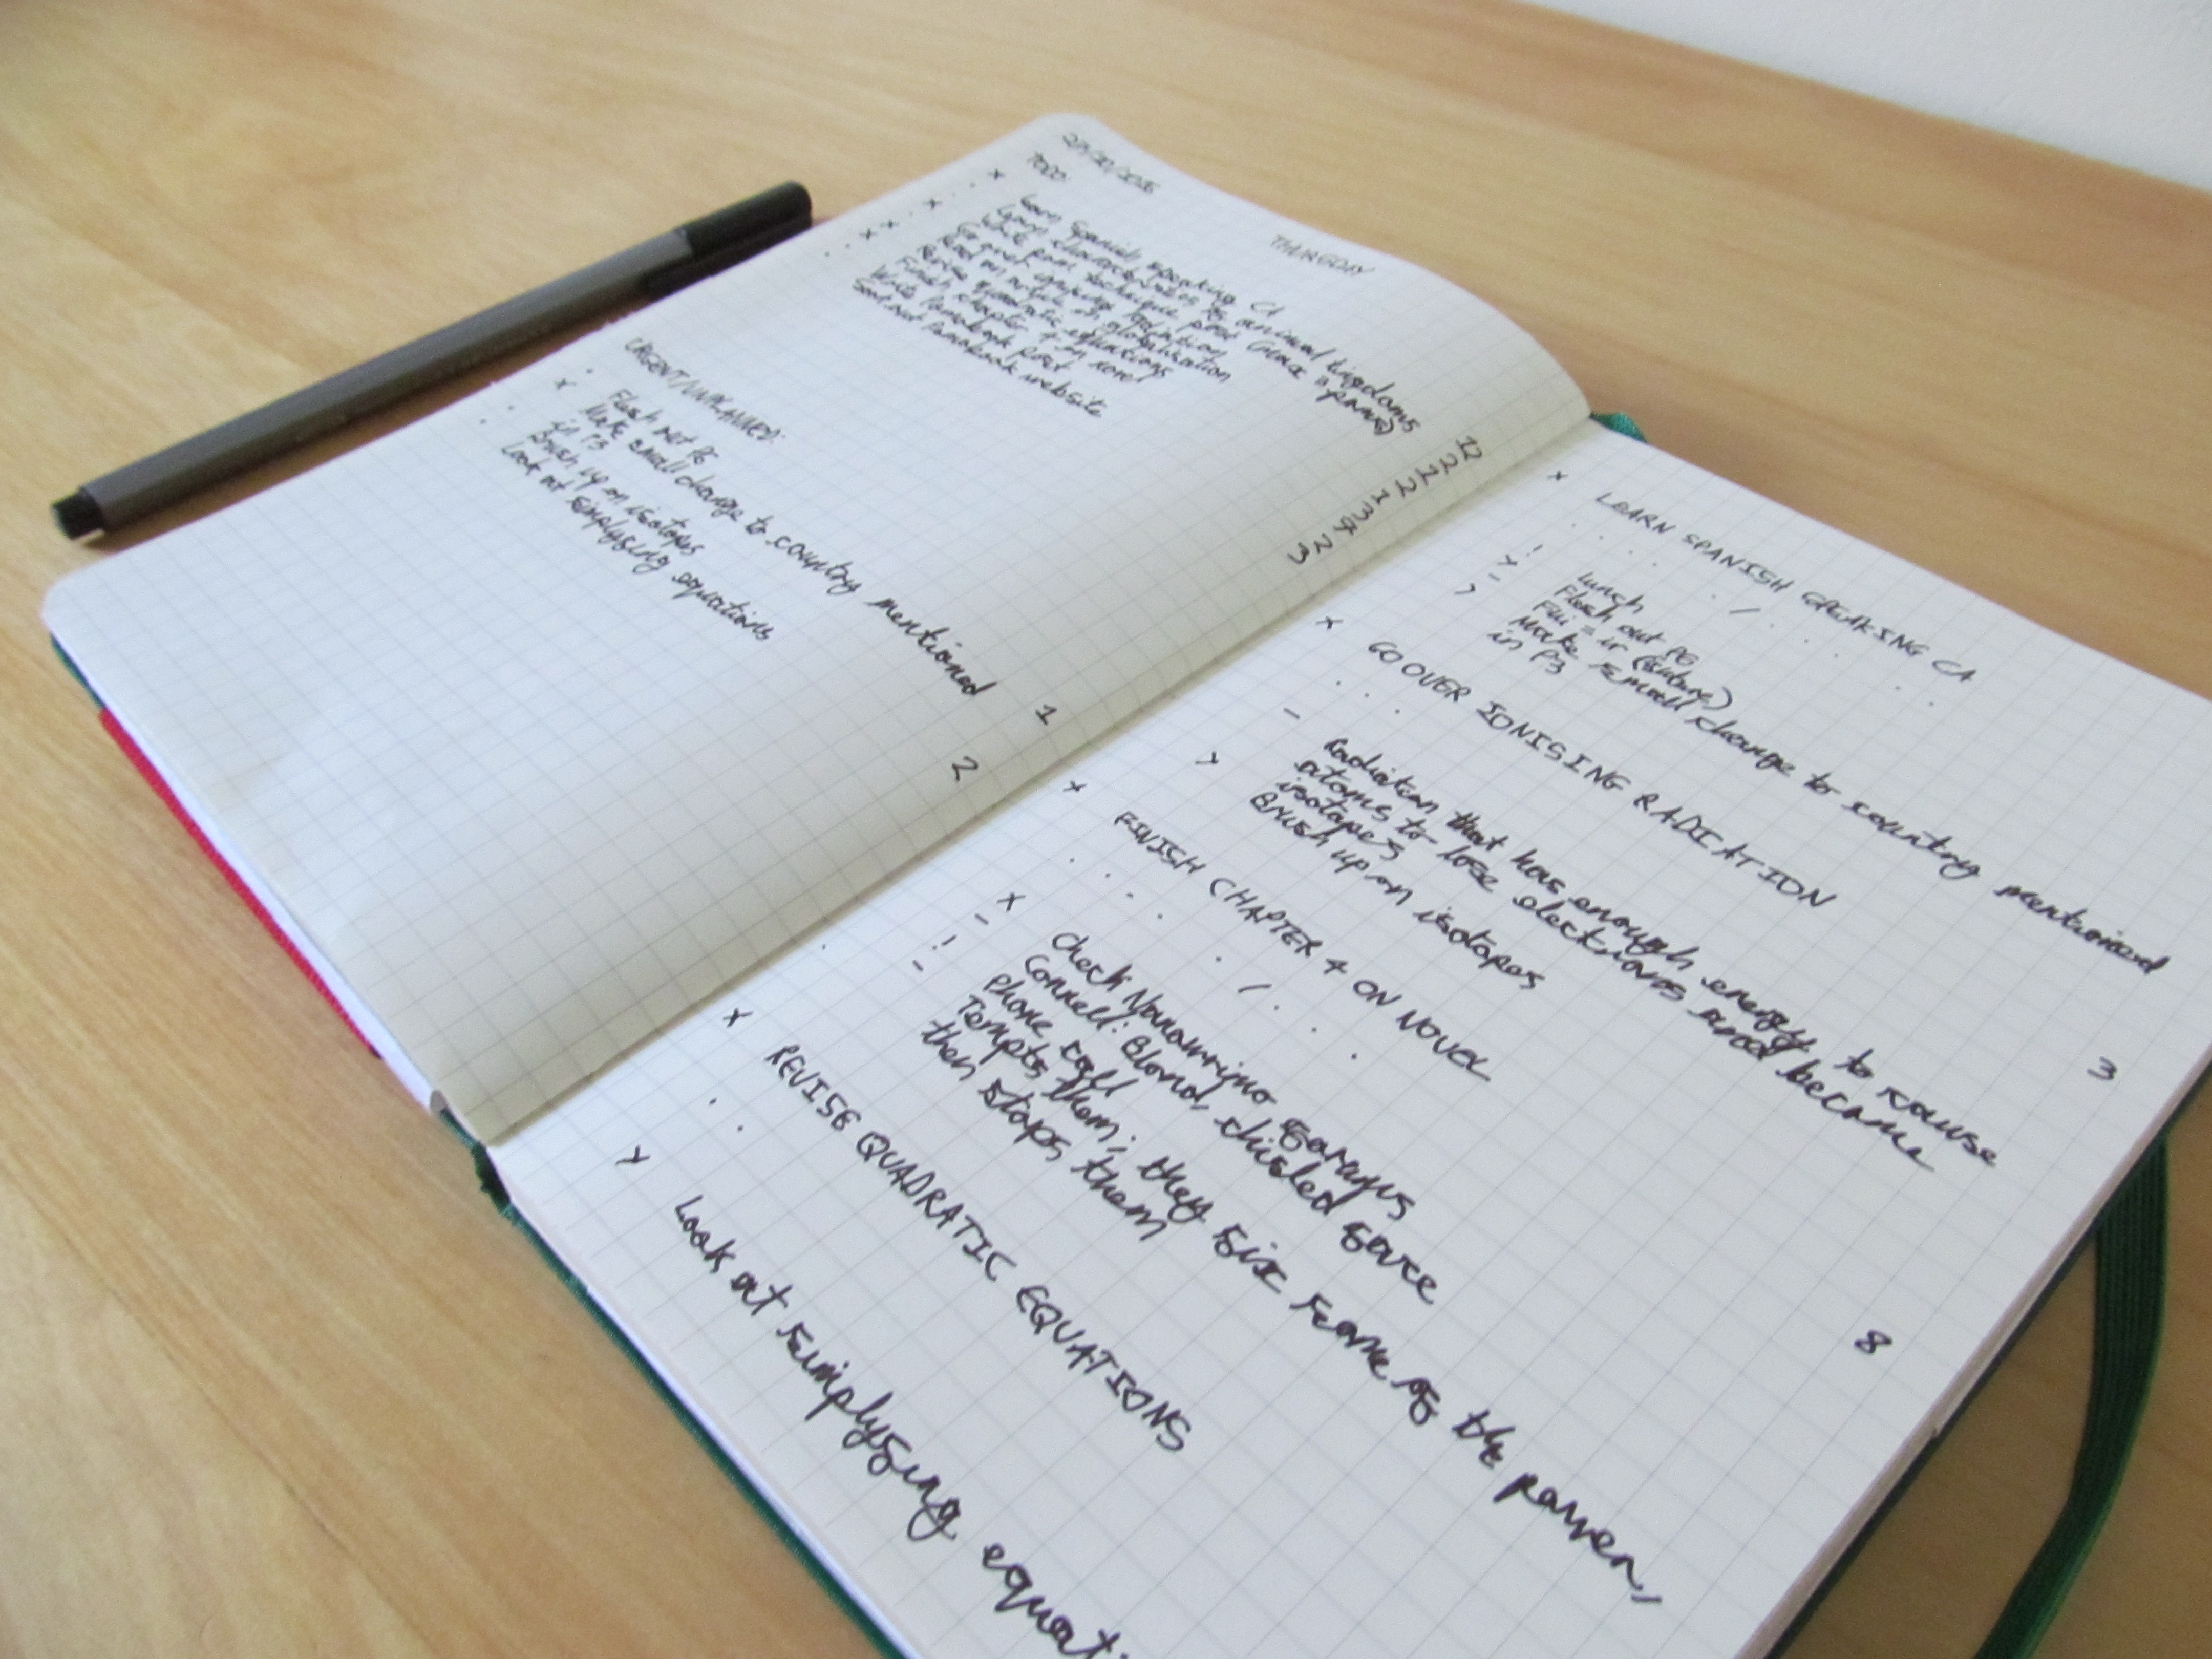 TODO:
THURSDAY
Learn Spanish speaking CA
Learn characteristics of animal kingdoms
Write exam technique post
Go over ionising radiation
Read an article on globalisation
Revise quadratic equations
Finish chapter 4 on novel
Write Pomobook post
Send out Pomobook website
12
2
2
2
1
3
2
3
URGENT/UNPLANNED:
Flesh out P6
Make small change to country mentioned
in P3
1
Brush up on isotopes
Look at simplyfing equations
2
x LEARN SPANISH SPEAKING CA
! Lunch
Flesh out P6
- Fui = ir (
Make small change to country mentioned
in P3
x GO OVER IONISING RADIATION
3
- Radiation that has enough energy to cause
atoms to lose electrons and become
isotopes
Brush up on isotopes
x FINISH CHAPTER 4 ON NOVEL
8
x Check Navarrino
- Connell: Blond, chisled face
! Phone call
- Tempts them; they fix some of the power,
then stops them
x REVISE QUADRATIC EQUATIONS
Look at simplyfing equati